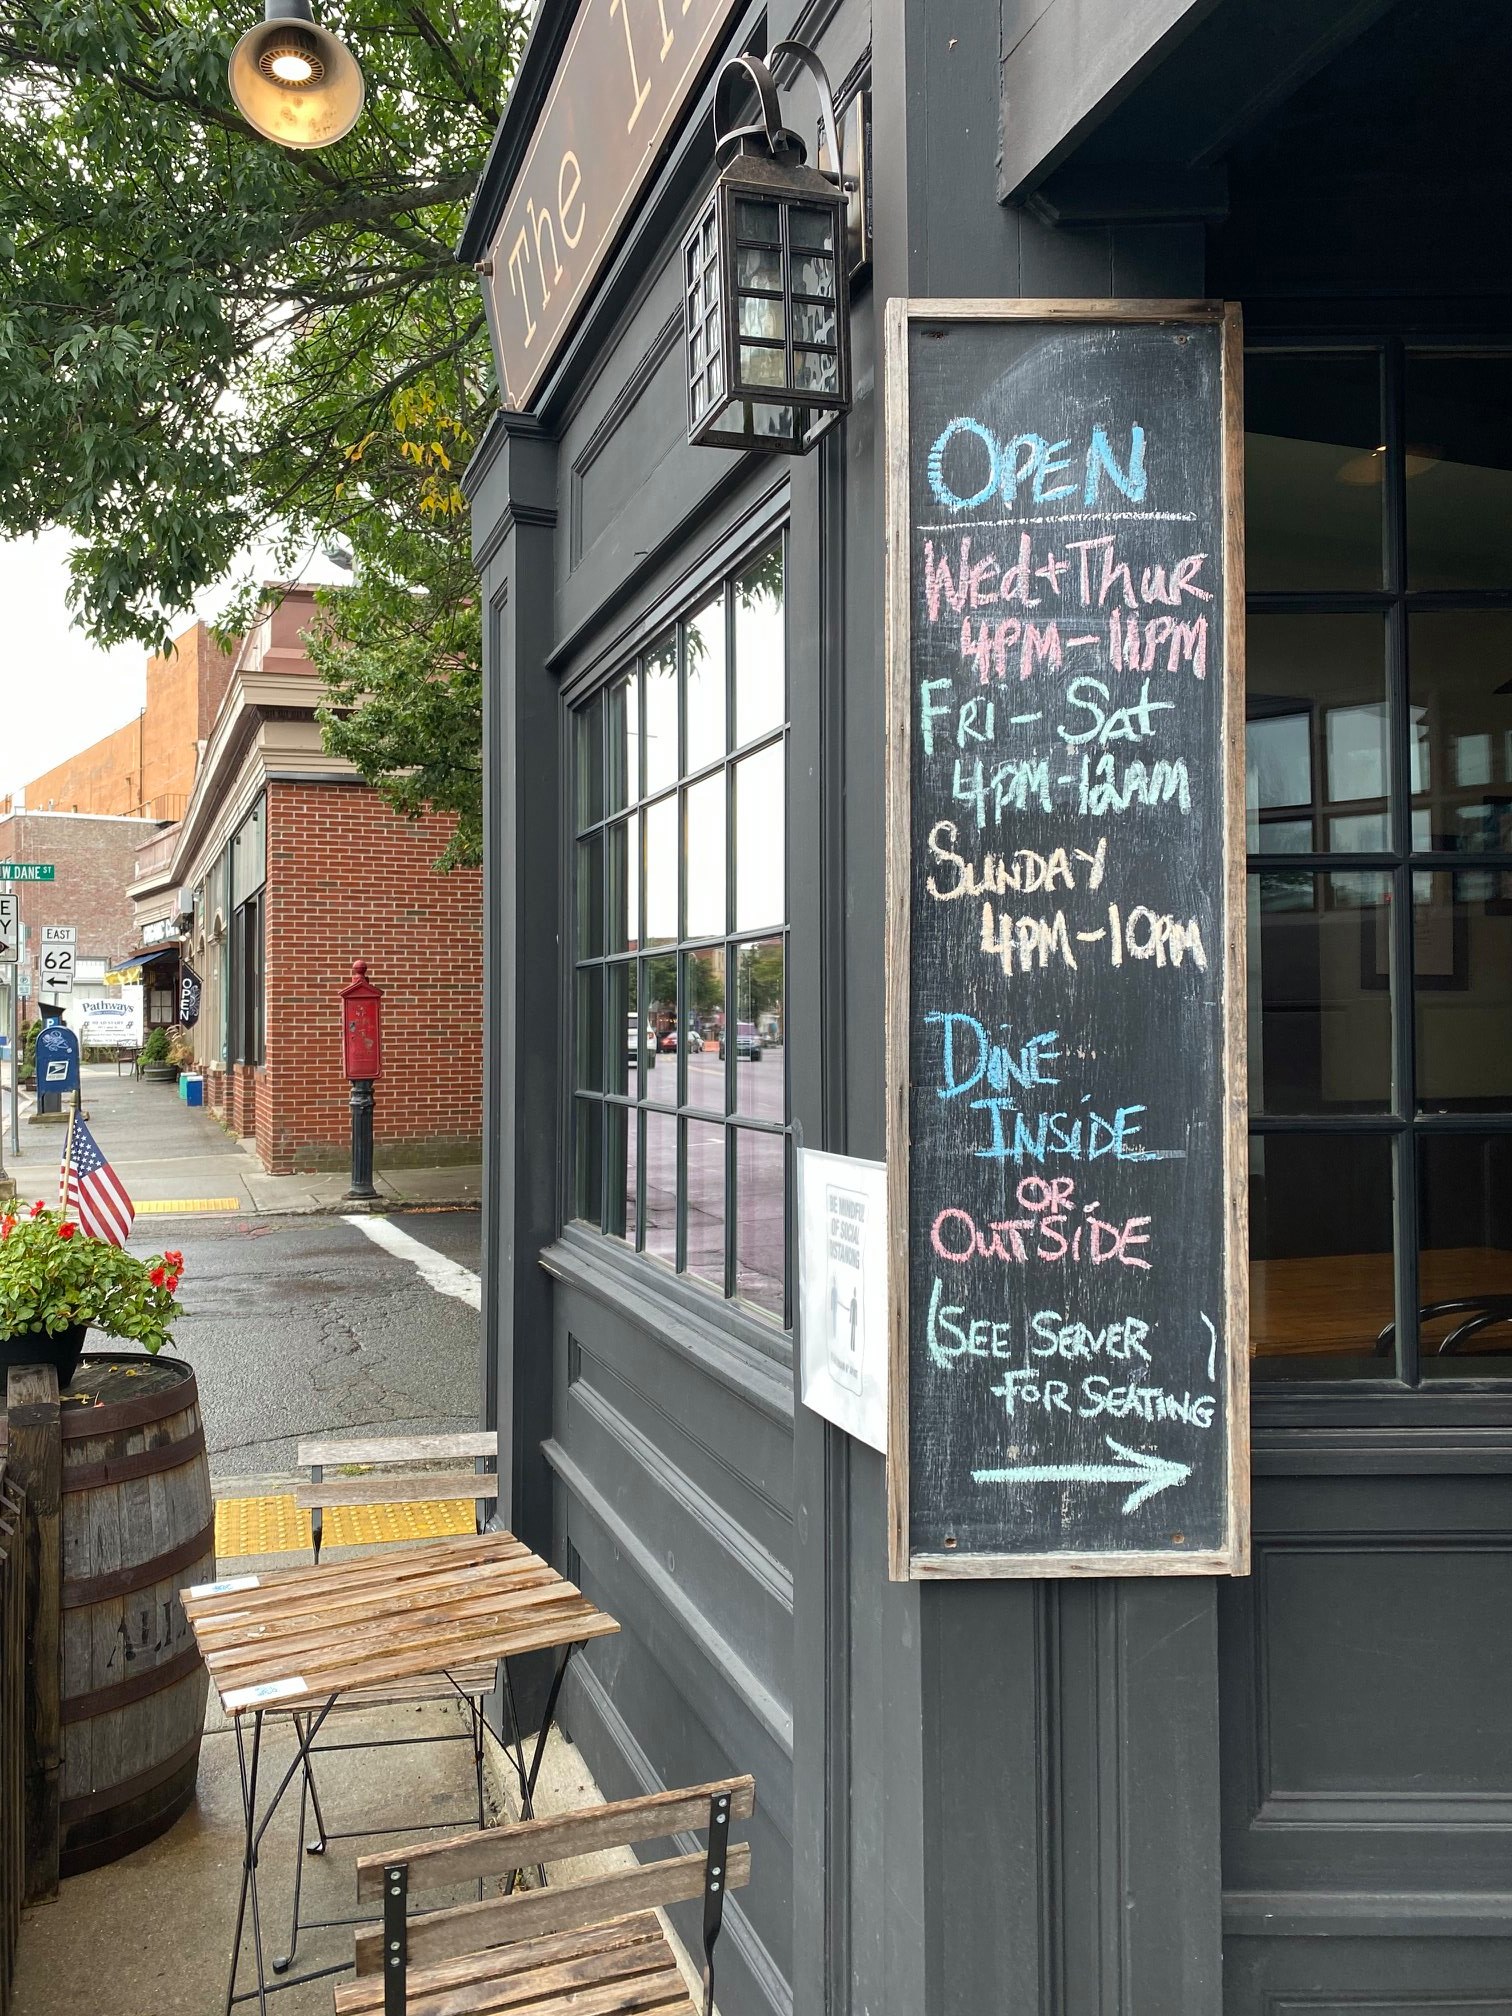 The
OPEN
Wed + Thur
4PM - 11PM
FRi - Sat
4pm - 12AM
SUNDAY
4PM - 10PM
DiNE
INSiDE
OR
OUTSiDE
(SEE SERVER )
FOR SEATING
W DANE ST
EAST
62
Pathways
OPEN
P
BE MINDFUL
OF SOCIAL
DISTANCING